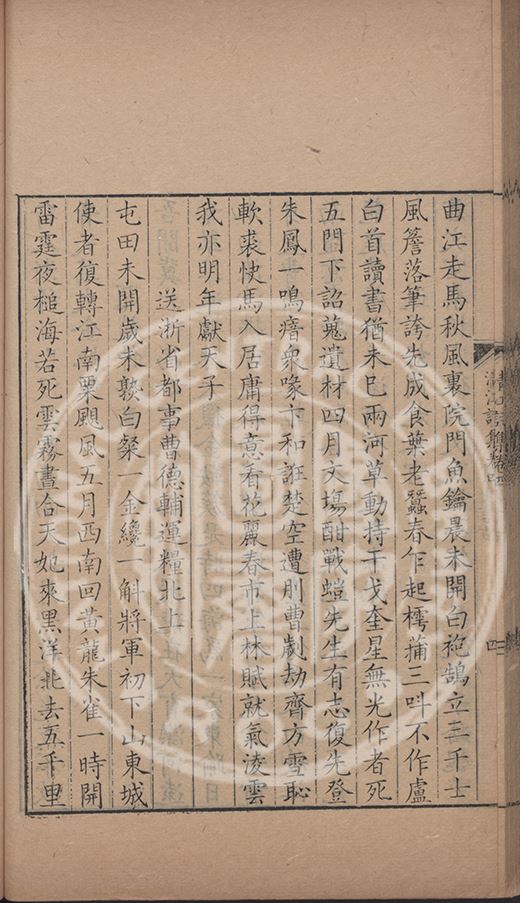 曲江走馬秋風裏院門魚鑰晨未開白袍鵠立三千士
風簷落筆誇先成食葉老蠶春乍起樗蒱三呌不作盧
白首讀書猶未巳兩河草動持干戈奎星無光作者死
五門下詔蒐遺材四月文塲酣戰螘先生有志復先登
朱鳳一鳴瘖衆喙卞和誑楚空遭刖曹劌劫齊方雪恥
軟裘快馬入居庸得意看花麗春市上林賦就氣淩雲
我亦明年獻天子
送浙省都事曹德輔運糧北上
屯田未開歲未熟白粲一金纔一斛將軍初下山東城
使者復轉江南粟颶風五月西南回黃龍朱雀一時開
雷霆夜槌海若死雲霧晝合天妃來黑洋北去五千里
清江詩集卷四